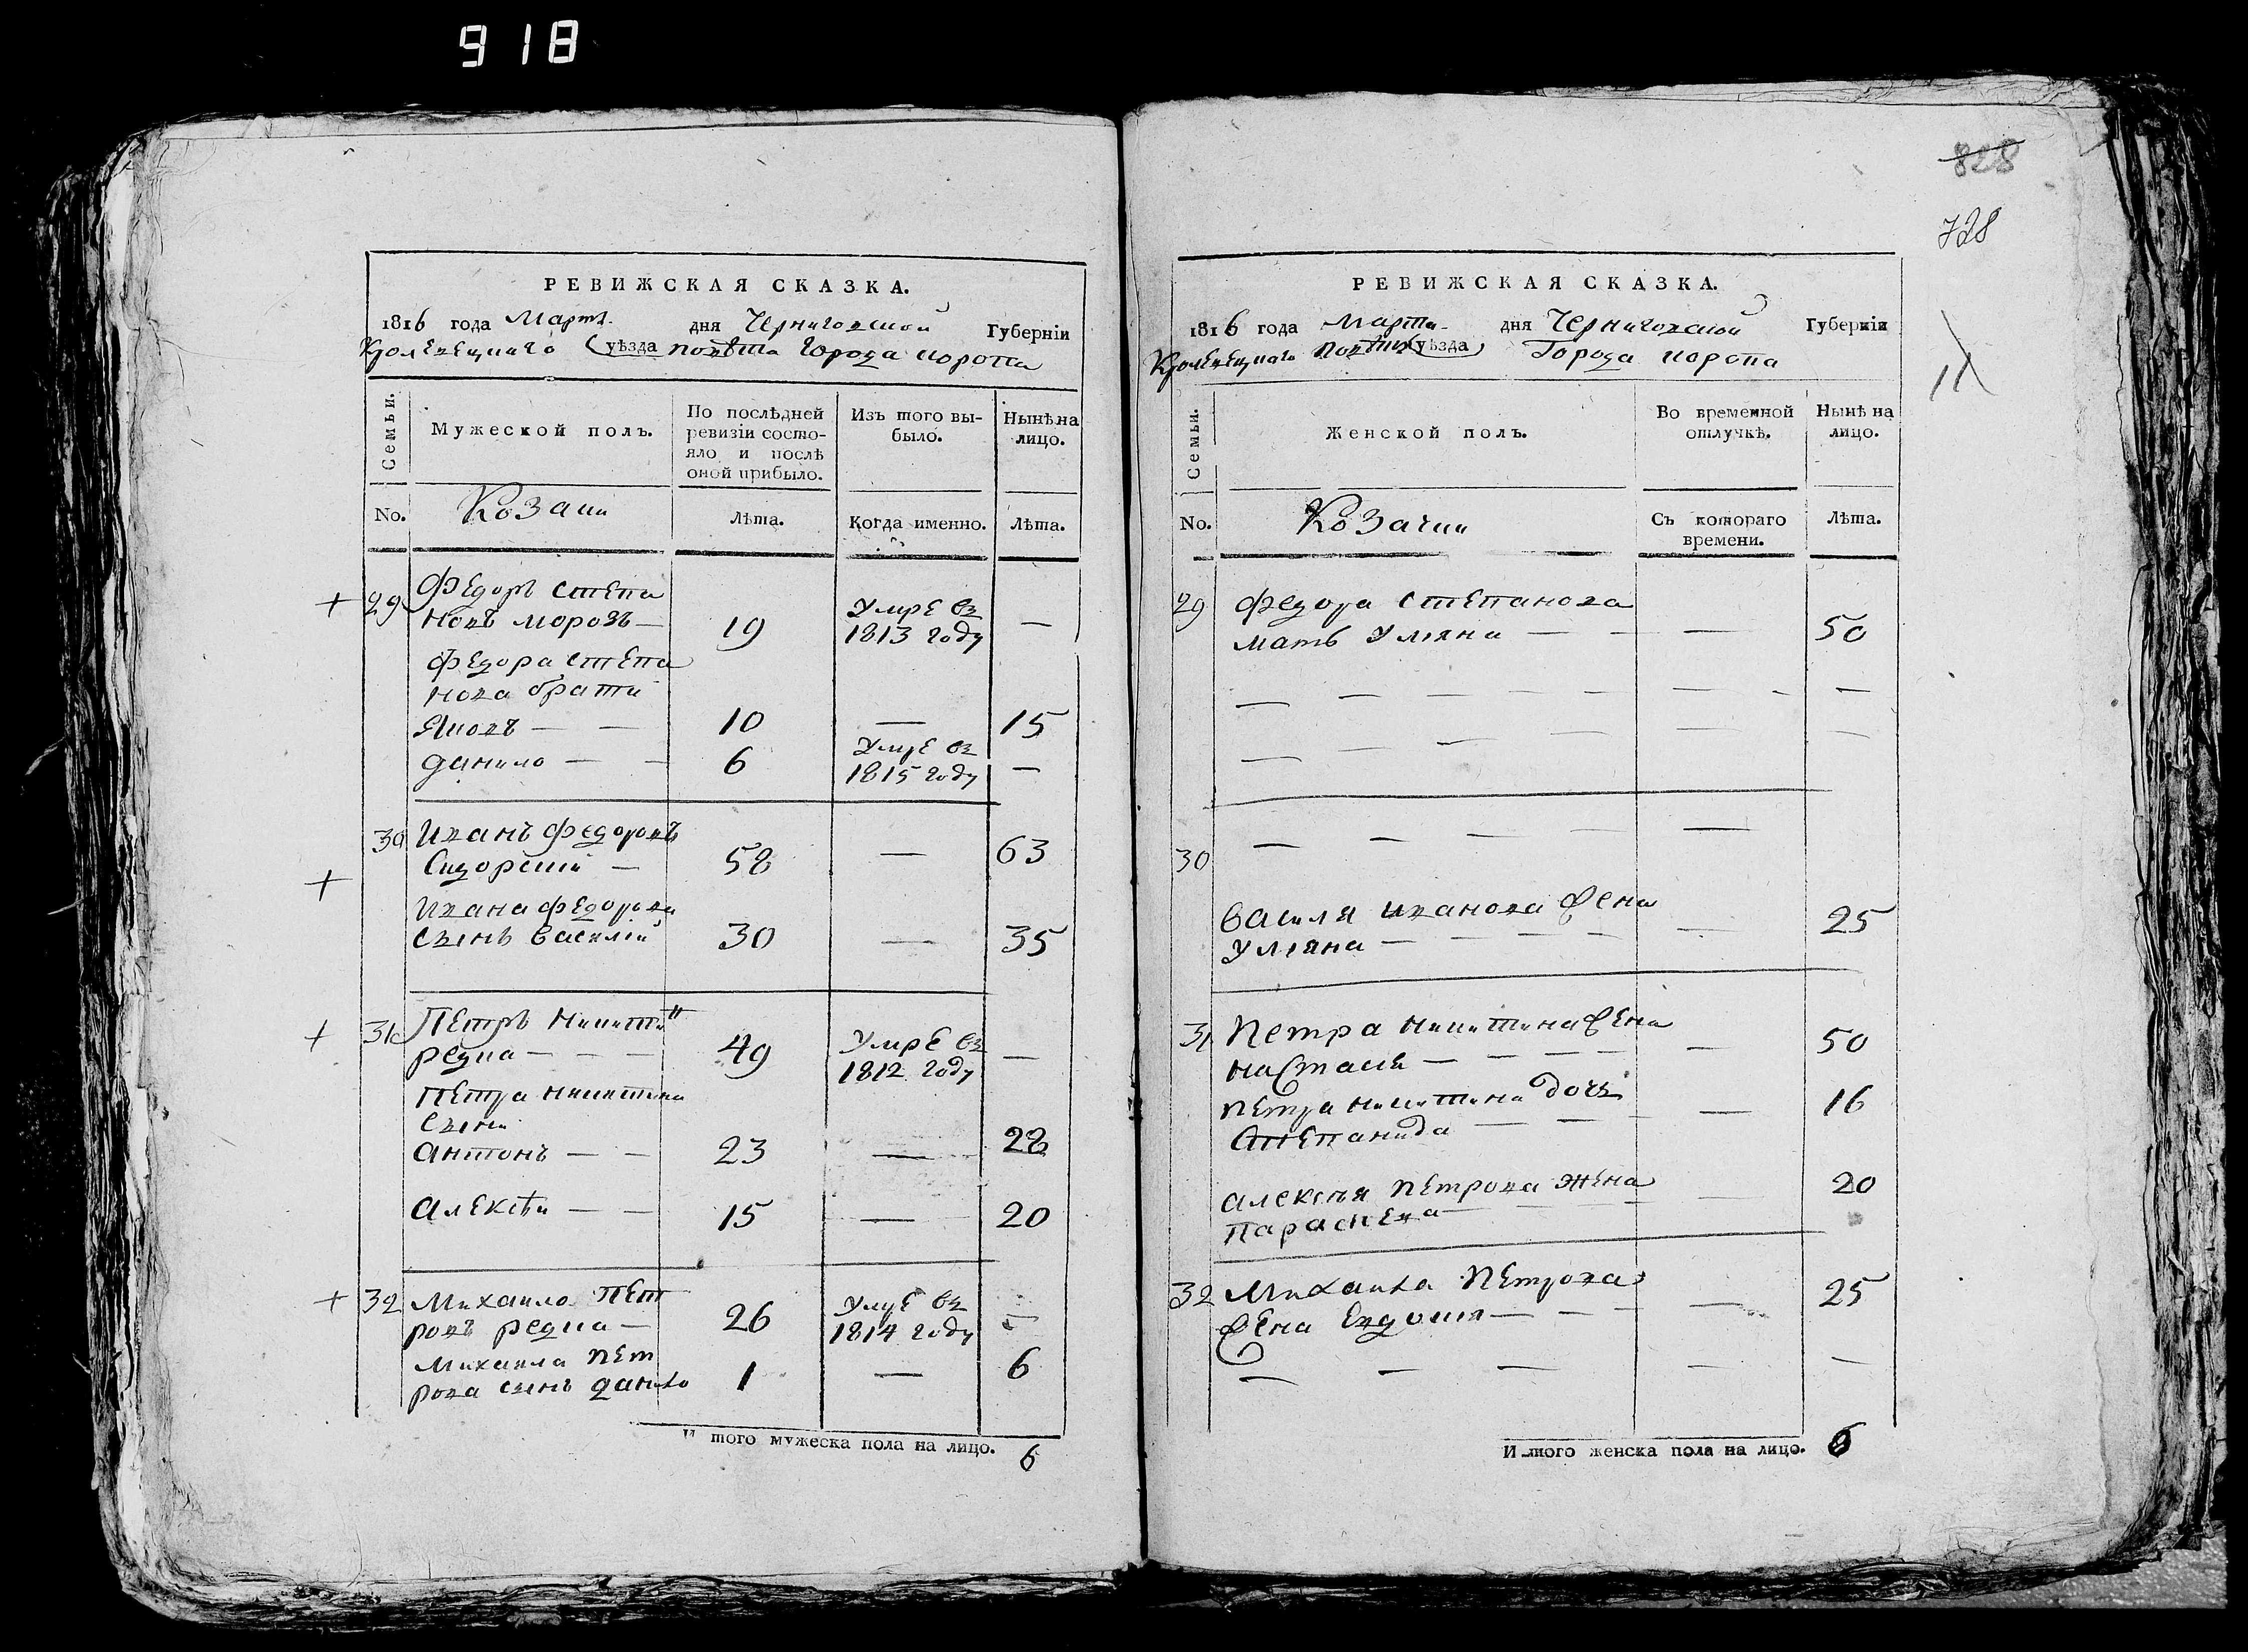 918
828
728
РЕВИЖСКАЯ СКАЗКА.
1816 года Марта дня Черниговской Губерніи
Кролевецкаго (уѣзда) повѣта города Коропа
Семьи.
Мужеской полъ.
По послѣдней ревизіи состо-
яло и послѣ оной прибыло.
Изъ того вы-
было.
Нынѣ на лицо.
No.
Козаки
Лѣта.
Когда именно.
Лѣта.
29
Федоръ Степа
новъ Морозъ —
19
Умре въ
1813 году
—
Федора Степа
нова брати
Яковъ — —
10
—
15
Данило — —
6
Умре въ
1815 году
—
30
Иванъ Федоровъ
Сидорскій —
58
—
63
Ивана Федорова
сынъ Василій
30
—
35
31
Петръ Никитинъ
Редка — — —
49
Умре въ
1812 году
—
Петра Никитина
сыни
Антонъ — —
23
—
28
Алексѣи — —
15
—
20
32
Михаило Пет
ровъ Редка —
26
Умре въ
1814 году
—
Михаила Пет
рова сынъ Данило
1
—
6
И того мужеска пола на лицо. 6
РЕВИЖСКАЯ СКАЗКА.
1816 года Марта дня Черниговской Губерніи
Кролевецкаго повѣта (уѣзда) Города Коропа
Семьи.
Женской полъ.
Во временной
отлучкѣ.
Нынѣ на
лицо.
No.
Козачки
Съ котораго
времени.
Лѣта.
29
Федора Степанова
мать Уляна — — —
50
30
Василя Иванова жена
Уляна — — — — —
25
31
Петра Никитина жена
Настася — — — — —
50
Петра Никитина дочь
Степанида — — —
16
Алексѣя Петрова жена
Параскева — — —
20
32
Михаила Петрова
жена Евдокия — — —
25
И того женска пола на лицо. 6